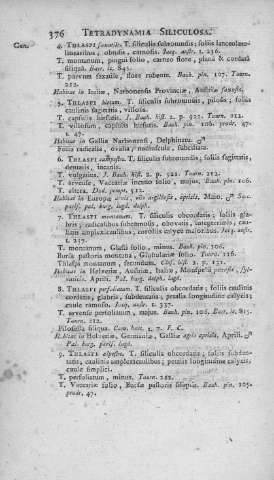 376 TETRADYNAMIA SILICULOSA.
Gen. 4. THLASPI saxatile. T. siliculis subrotundis; foliis lanceolato-
linearibus, obtusis, carnosis. Jacq. austr. t. 236.
T. montanum, pingui folio, carneo flore, plana & cordata
siliqua. Barr. ic. 845.
T. parvum saxatile, flore rubente. Bauh. pin. 107. Tourn.
212.
Habitat in Italiæ, Narbonensis Provinciæ, Austriæ saxosis.
5. THLASPI hirtum. T. siliculis subrotundis, pilosis; foliis
caulinis sagittatis, villosis.
T. capsulis hirsutis. J. Bauh. hist. 2. p. 922. Tourn. 212.
T. villosum, capsulis hirsutis. Bauh. pin. 106. prodr. 47.
t. 47.
Habitat in Gallia Narbonensi, Delphinatu. ♂
Folia radicalia, ovalia, subciliata.
6. THLASPI campestre. T. siliculis subrotundis; foliis sagittatis,
dentatis, incanis.
T. vulgatius. J. Bauh. hist. 2. p. 921. Tourn. 212.
T. arvense, Vaccariæ incano folio, majus. Bauh. pin. 106.
T. altera. Dod. pempt. 712.
Habitat in Europæ arvis, agris, Maio. ♂
7. THLASPI montanum. T. siliculis obcordatis; foliis gla-
bris; radicalibus subcarnosis, obovatis, integerrimis, cau-
linis amplexicaulibus; corollis calyce majoribus. Jacq. austr.
t. 237.
T. montanum, Glasti folio, minus. Bauh. pin. 106.
Bursa pastoris montana, Globulariæ folio. Tourn. 216.
Thlaspi montanum, secundum. Clus. hist. 2. p. 131.
Habitat in Helvetiæ, Austriæ, Italiæ, Monspelii
Aprili. Pal.
8. THLASPI perfoliatum. T. siliculis obcordatis; foliis caulinis
cordatis, glabris, subdentatis; petalis longitudine calycis;
caule ramoso. Jacq. austr. t. 337.
T. arvense perfoliatum, majus. Bauh. pin. 106. Barr. ic. 815.
Tourn. 212.
Pilosella siliqua.
Habitat in Helvetiæ, Germaniæ, Galliæ agris apricis, Aprili. ♂
Pal.
9. THLASPI alpestre. T. siliculis obcordatis; foliis subden-
tatis, caulinis amplexicaulibus; petalis longitudine calycis;
caule simplici.
T. perfoliatum, minus. Tourn. 212.
T. Vaccariæ folio, Bursæ pastoris siliquis. Bauh. pin. 105.
prodr. 47.